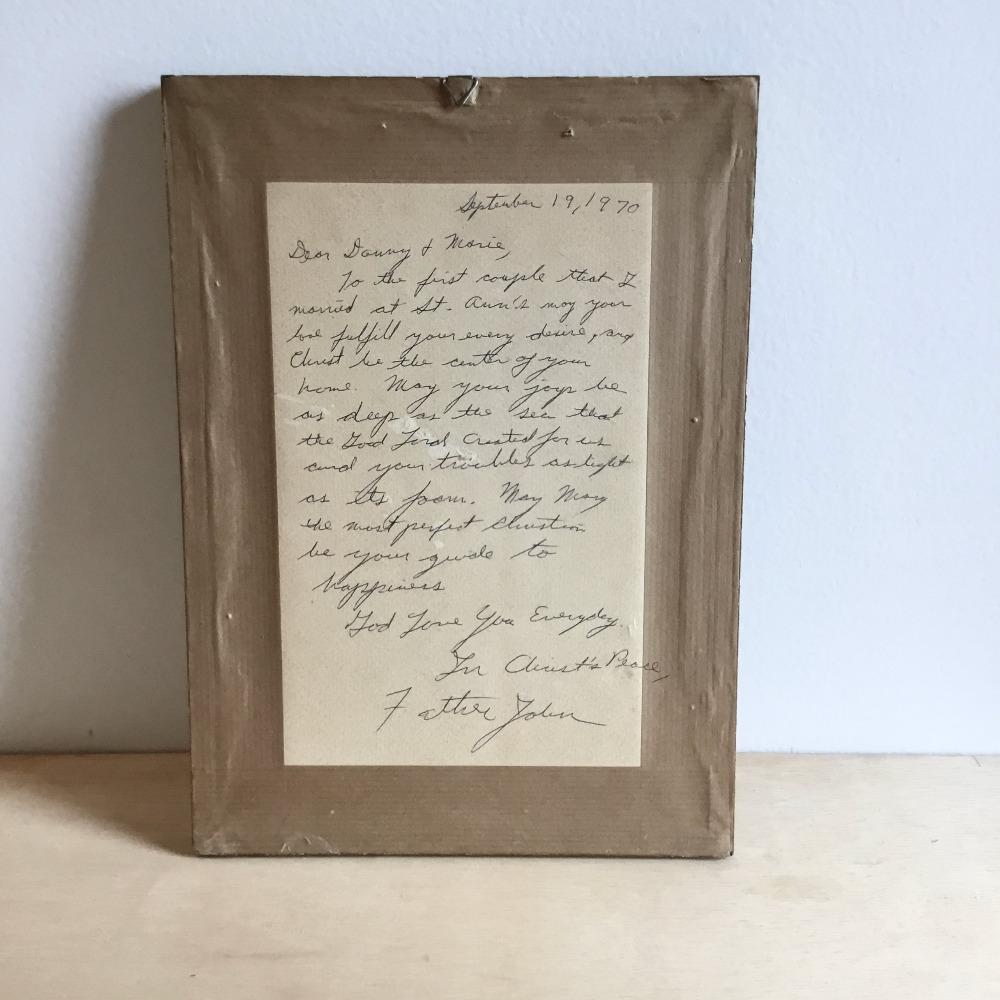 September 19, 1970
Dear Danny & Marie,
To the first couple that I
married at St. Ann's may your
love fulfill your every desire, and
Christ be the center of your
home. May your joys be
as deep as the sea that
the Good Lord Created for us
and your troubles as light
as its foam. May Mary
the most perfect Christian
be your guide to
happiness
God Love You Everyday.
In Christ's Peace,
Father John